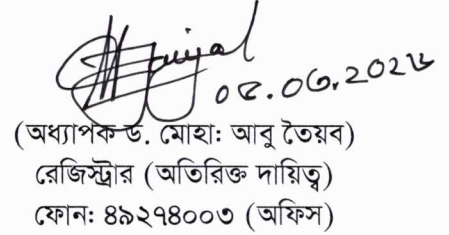 ০৫.০৩.২০২৬
(অধ্যাপক ড. মোহাঃ আবু তৈয়ব)
রেজিস্ট্রার (অতিরিক্ত দায়িত্ব)
ফোন: ৪৯২৭৪০০৩ (অফিস)